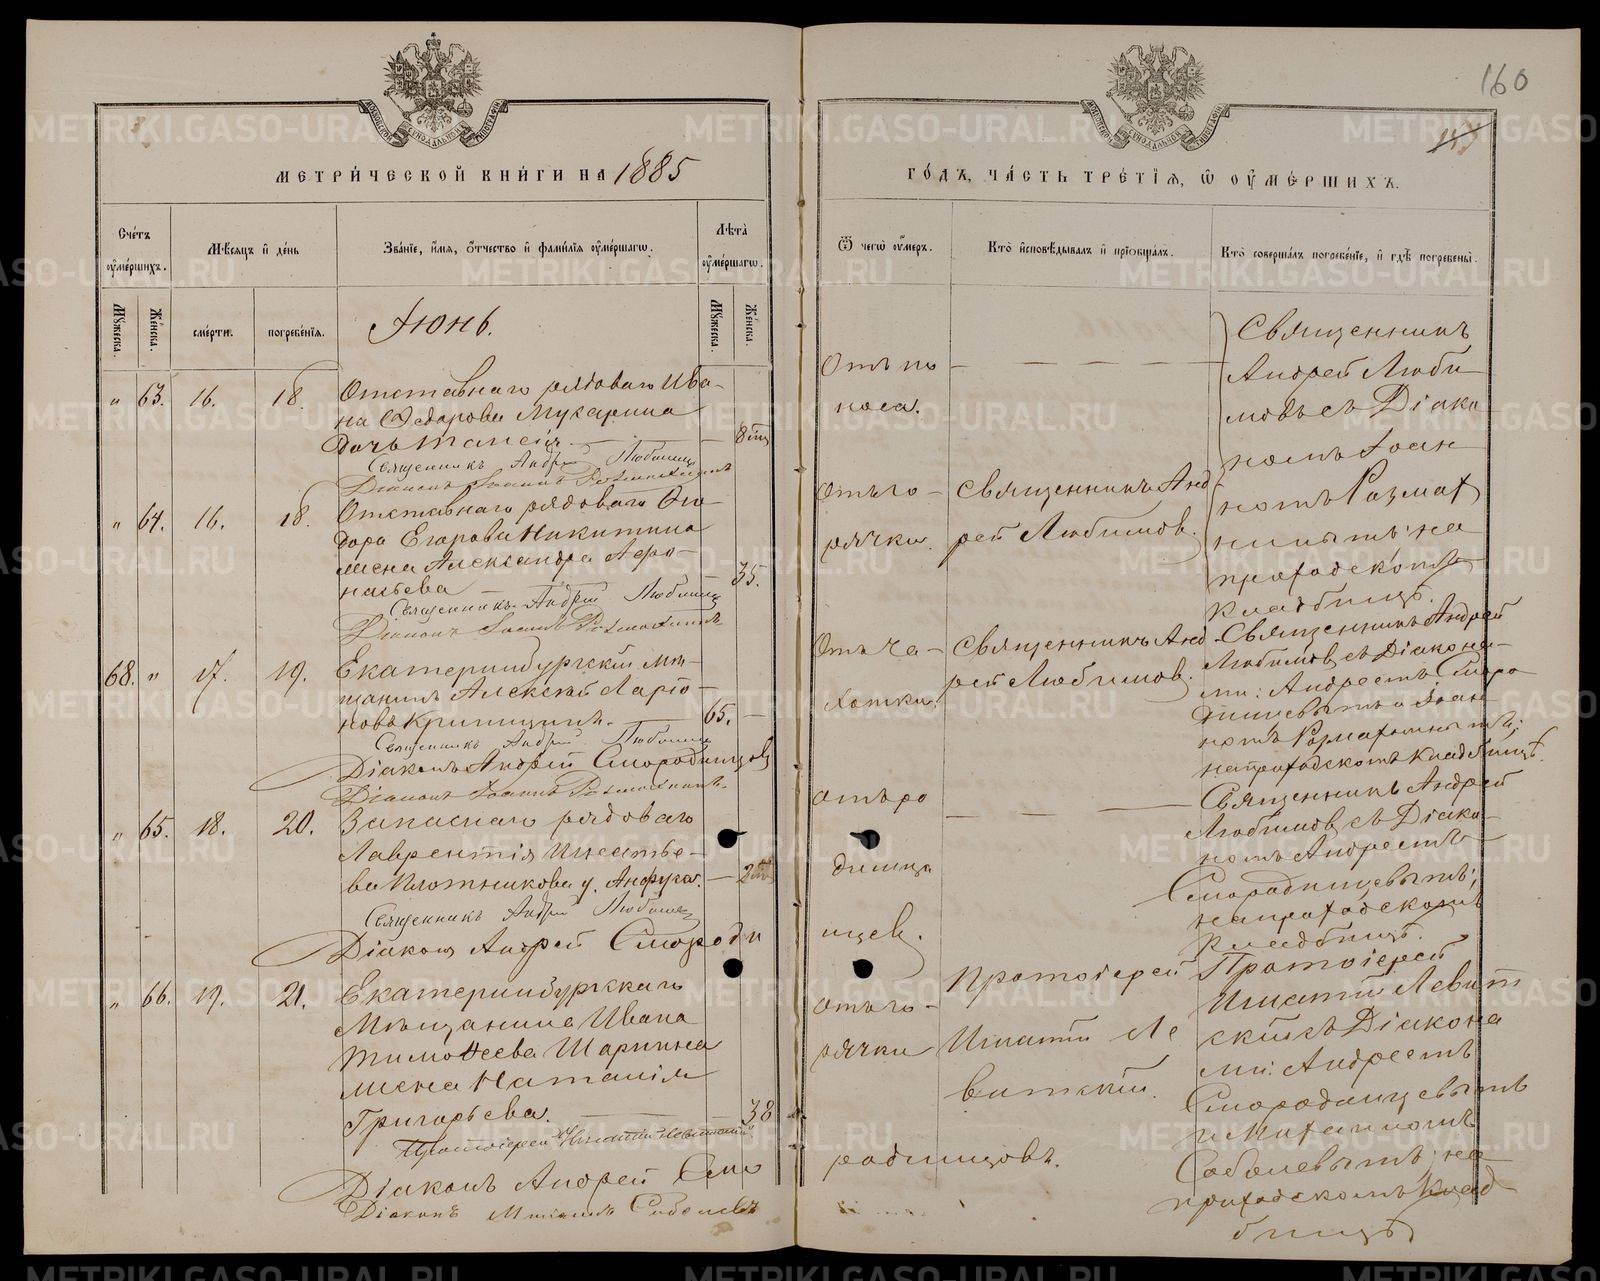 160
МЕТРИ́ЧЕСКОЙ КНИ́ГИ НА 1885
ГО́ДЪ, ЧА́СТЬ ТРЕ́ТІЯ, Ѿ ОУМЕ́РШИХЪ.
Сче́тъ оумершихъ.
Мѣсяцъ и день
Зва́ніе, имя, отчество и фамилія оумершагѡ.
Лѣта оумершагѡ.
Ѿ чегѡ оумеръ.
Кто исповѣдывалъ и пріобщалъ.
Кто совершалъ погребеніе, и гдѣ погребены.
Мужеска.
Женска.
смерти.
погребенія.
Іюнь.
Мужеска.
Женска.
„ 63. 16. 18.
Отставнаго рядоваго Ива-
на Ѳедорова Мухарина
дочь Таисія — 8 мц
Священникъ Андрей Любимов
Діаконъ Іоаннъ Размахнинъ
Отъ по
носа.
Священникъ
Андрей Люби
мовъ съ Діако
номъ Іоан
номъ Размах
нинымъ: на
приходскомъ
кладбищѣ.
„ 64. 16. 18.
Отставнаго рядоваго
дора Егорова Никитина
жена Александра
35.
Священникъ Андрей Любимов
Діаконъ Іоаннъ Размахнинъ
Отъ го-
рячки.
Священникъ Анд
рей Любимов.
68. „ 17. 19.
Екатеринбургскій мѣ-
щанинъ Алексѣй Ларіо-
новъ — 65. —
Священникъ Андрей Любимов
Діаконъ Андрей Смородинцовъ
Діаконъ Іоаннъ Размахнинъ.
Отъ ча-
хотки.
Священникъ Анд
рей Любимов.
Священникъ Андрей
Любимов съ Діакона-
ми: Андреемъ Сморо
динцевымъ и Іоан
номъ Размахнинымъ;
на приходскомъ кладбищѣ.
„ 65. 18. 20.
Запаснаго рядоваго
Лаврентія Игнатье-
ва Плотникова д. Анфуса. —
Священникъ Андрей Любимов
Діаконъ Андрей Смороди
отъ ро
димца
Священникъ Андрей
Любимов съ Діако-
номъ Андреемъ
Смородинцевымъ;
на приходскомъ
кладбищѣ.
нцев.
„ 66. 19. 21.
Екатеринбургскаго
Мѣщанина Ивана
Тимоѳеева Шарпина
жена Наталія
Григорьева. — 38
Протоіерей Игнатій Левитскій
Діаконъ Андрей Смо
родинцовъ.
Діаконъ Михаилъ Соболевъ
отъ го-
рячки
Протоіерей
Игнатій Ле
витскій.
Протоіерей
Игнатій Левит
скій съ Діакона
ми: Андреемъ
Смородинцевымъ
и Михаиломъ
Соболевымъ; на
приходскомъ клад
бищѣ
METRIKI.GASO-URAL.RU